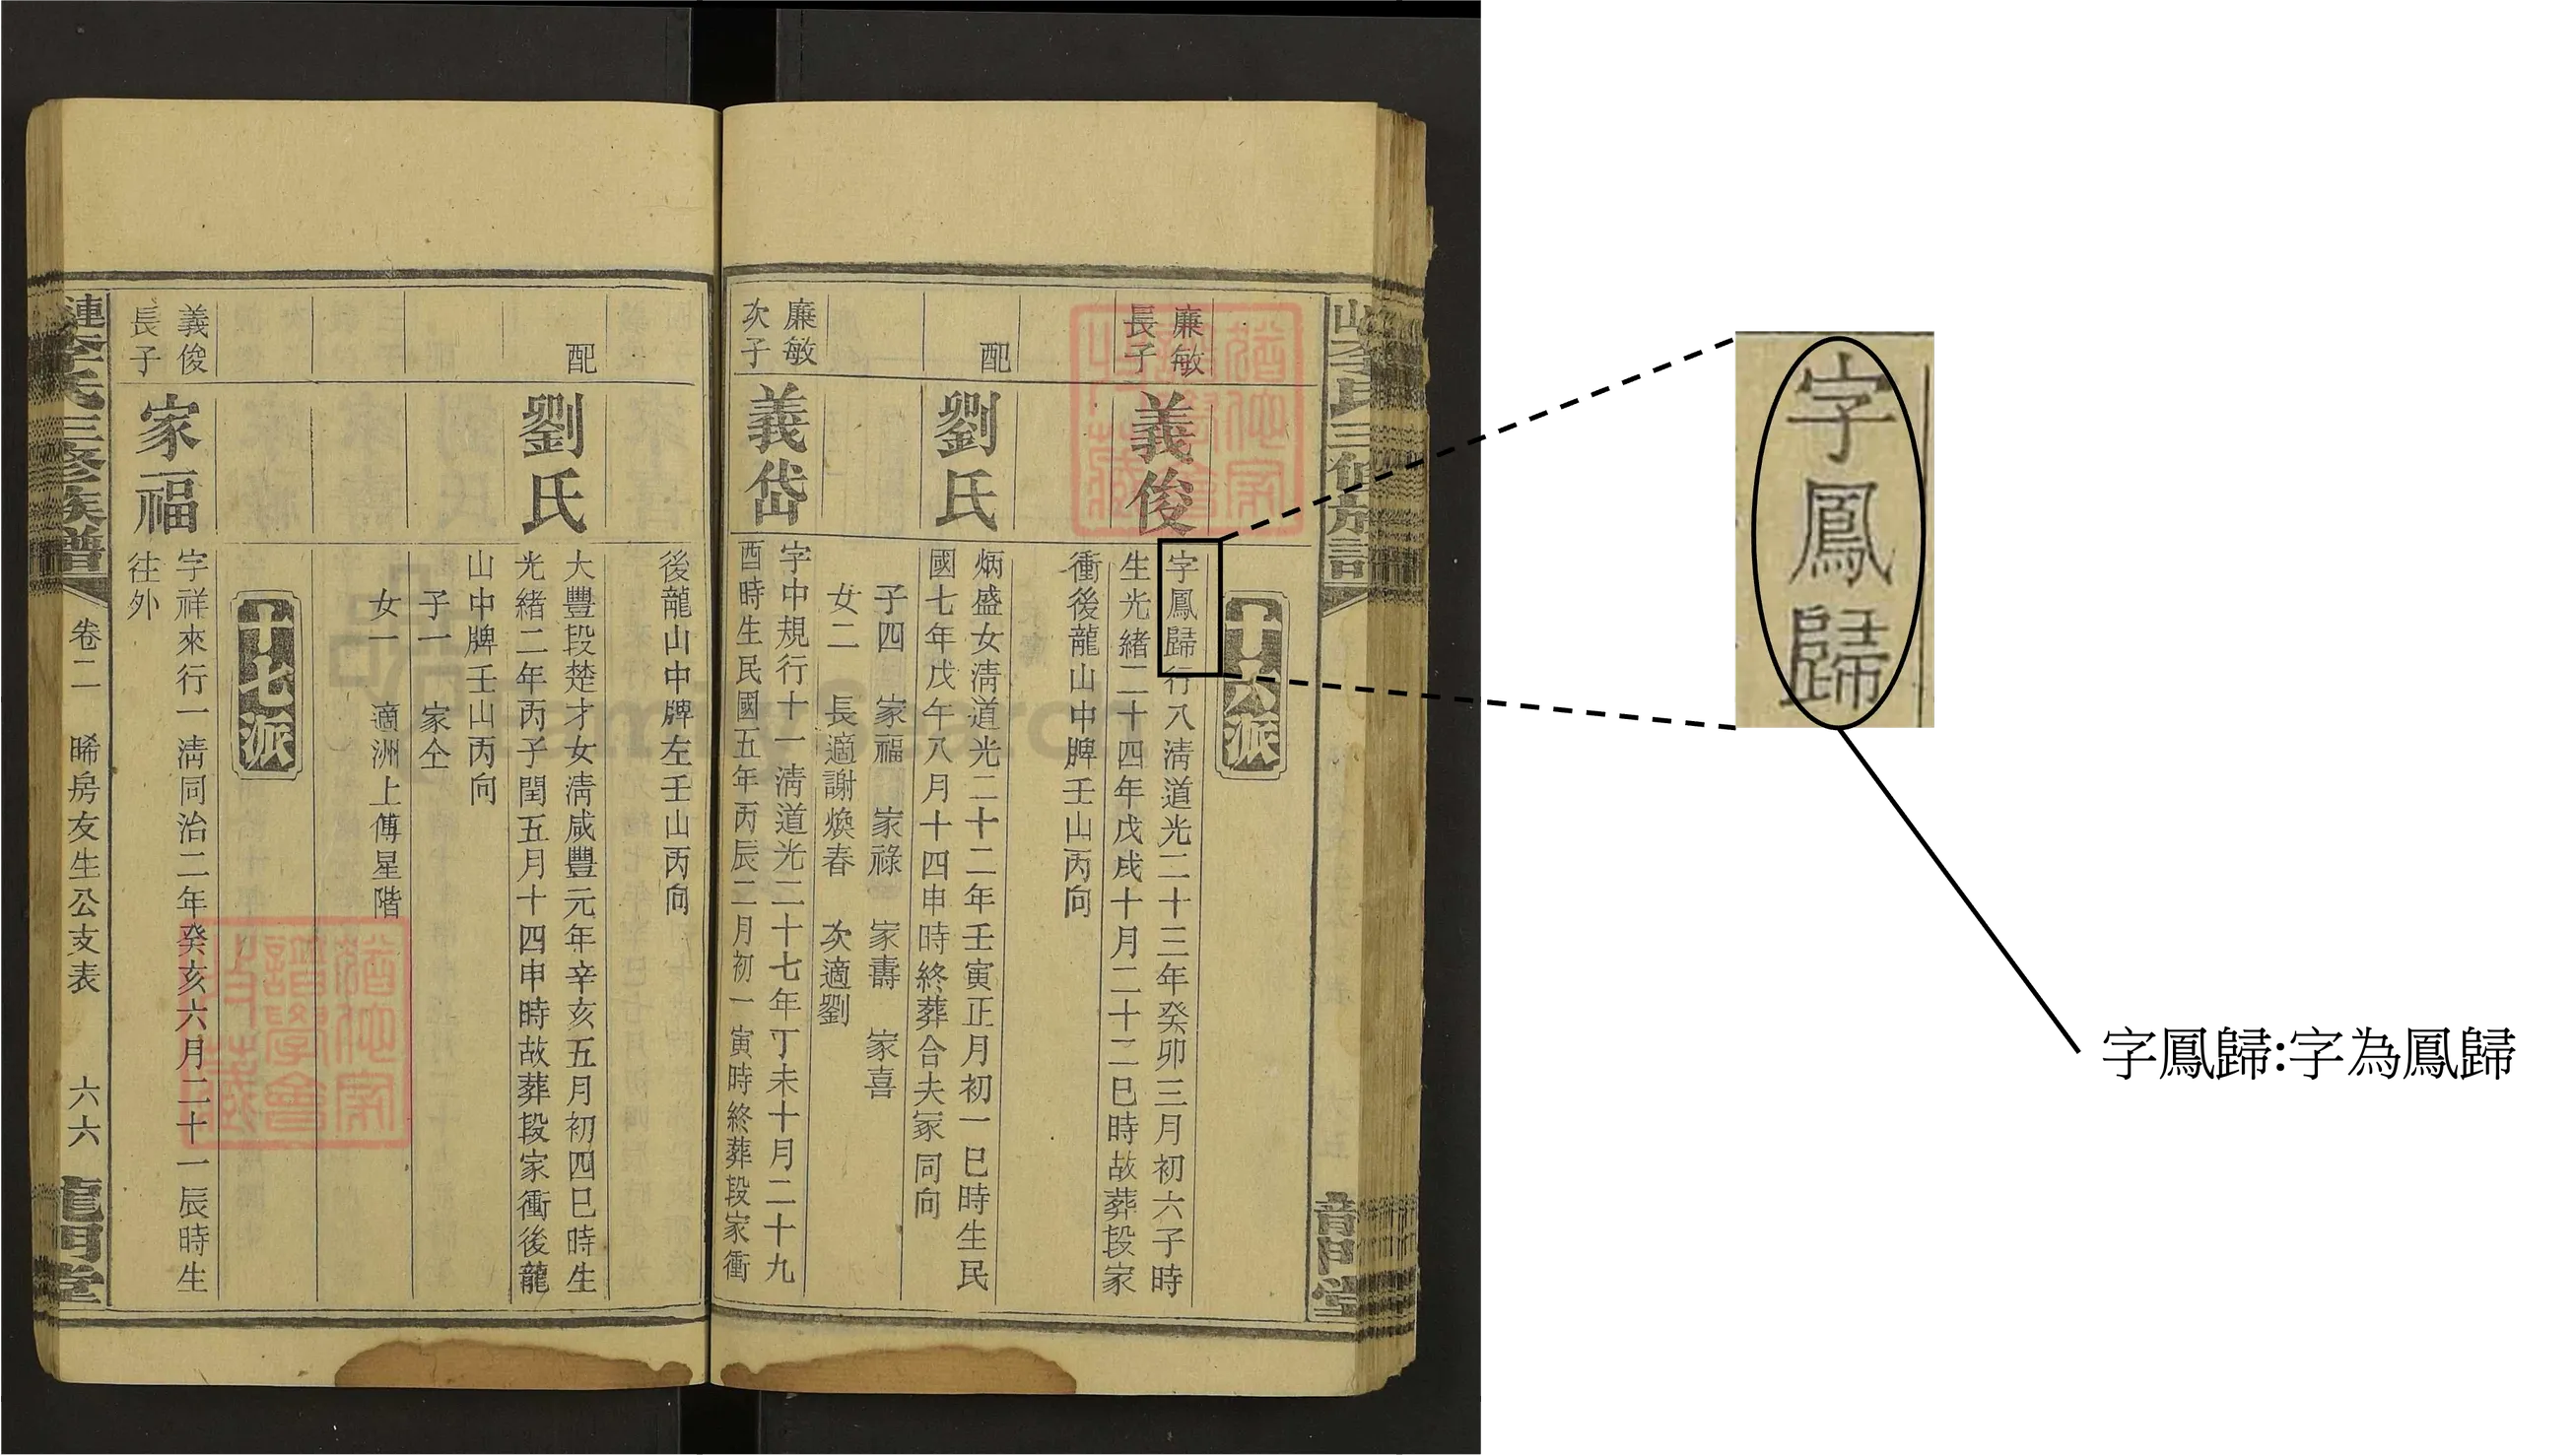 十六派
廉敏
長子
義俊
字鳳歸行八淸道光二十三年癸卯三月初六子時
生光緒二十四年戊戌十月二十二巳時故葬段家
衝後龍山中牌壬山丙向
配
劉氏
炳盛女淸道光二十二年壬寅正月初一巳時生民
國七年戊午八月十四申時終葬合夫冢同向
子四 家福 家祿 家壽 家喜
女二 長適謝煥春 次適劉
廉敏
次子
義岱
字中規行十一淸道光二十七年丁未十月二十九
酉時生民國五年丙辰二月初一寅時終葬段家衝
後龍山中牌左壬山丙向
配
劉氏
大豐段楚才女淸咸豐元年辛亥五月初四巳時生
光緒二年丙子閏五月十四申時故葬段家衝後龍
山中牌壬山丙向
子一 家仝
女一 適洲上傅星階
十七派
義俊
長子
家福
字祥來行一淸同治二年癸亥六月二十一辰時生
往外
漣李氏三修族譜 卷二 晞房友生公支表 六六 龍門堂
字鳳歸
字鳳歸:字為鳳歸